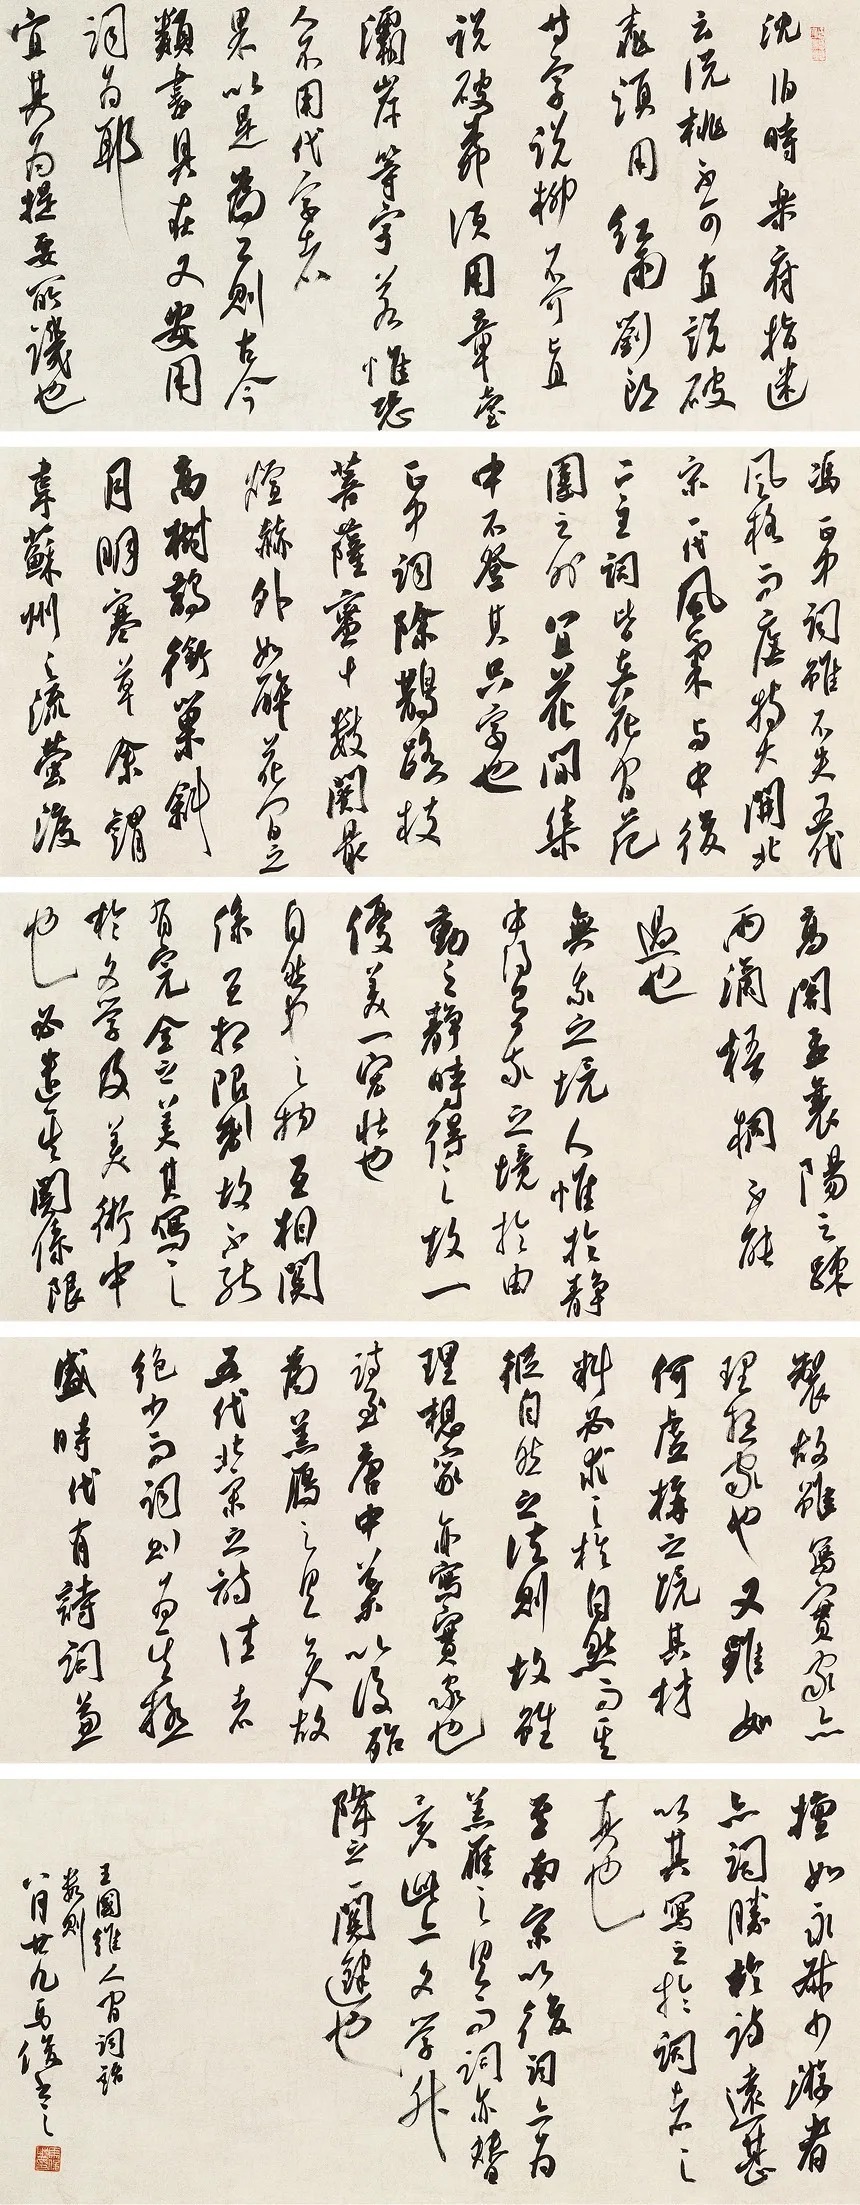 沈伯時樂府指迷
云說桃不可直說破
桃須用紅雨劉郎
等字說柳不可直
說破柳須用章臺
灞岸等字若惟恐
人不用代字者
果以是為工則古今
類書具在又安用
詞為耶
宜其為提要所譏也
馮正中詞雖不失五代
風格而廡特大開北
宋一代風氣與中後
二主詞皆在花間范
圍之外宜花間集
中不登其只字也
正中詞除鵲踏枝
菩薩蠻十數闋最
煊赫外如醉花間之
高樹鵲銜巢斜
月明寒草余謂
韋蘇州之流螢渡
高閣孟襄陽之疎
雨滴梧桐不能
過也
無我之境人惟於靜
中得之有我之境於由
動之靜時得之故一
優美一宏壯也
自然中之物互相關
係互相限製故不能
有完全之美其寫之
於文學及美術中
也必遺其關係限
製故雖寫實家亦
理想家也又雖如
何虛構之境其材
料必求之於自然而其
從自然之法則故雖
理想家亦寫實家也
詩至唐中葉以後殆
為羔鴈之具矣故
五代北宋之詩佳者
絕少而詞則為其極
盛時代有詩詞兼
擅如永叔少游者
亦詞勝於詩遠甚
以其寫之於詞者之
真也
至南宋以後詞亦為
羔雁之具而詞亦替
矣此亦文學升
降之一關鍵也
王國維人間詞話
數則
八月廿九馬俊書之